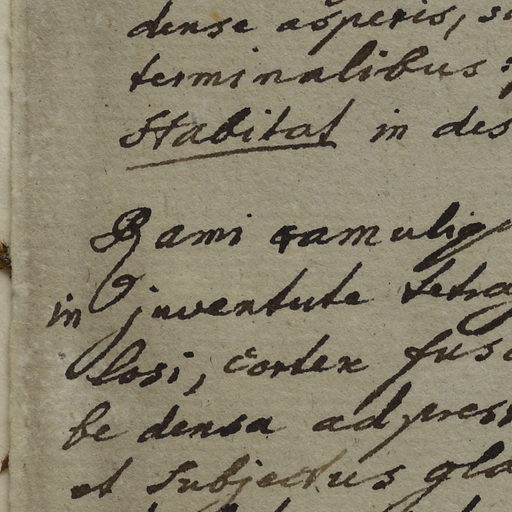 dense asperis, s
terminalibus:
Habitat in des
Rami ramulique
in juventute tetrag
losi, cortex fusc
be densa adpress
et subjectus gla